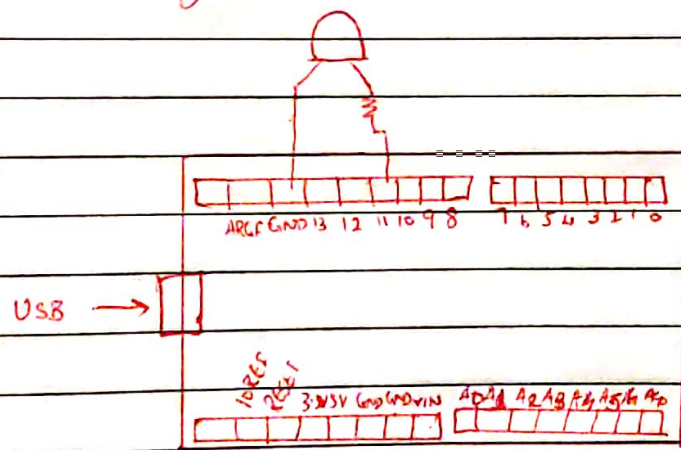 AREF GND 13 12 11 10 9 8 7 6 5 4 3 2 1 0
USB
IOREF RESET 3.3V 5V GND GND VIN A0 A1 A2 A3 A4 A5